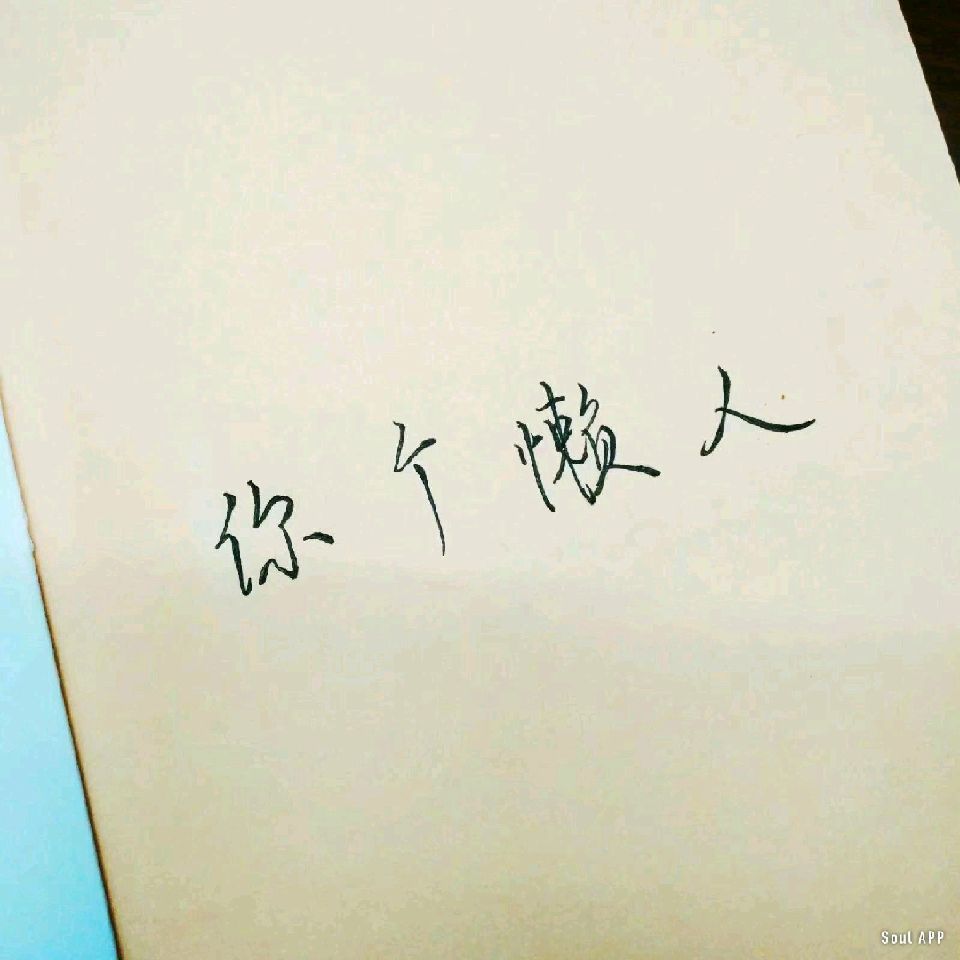 你个懒人
Soul APP